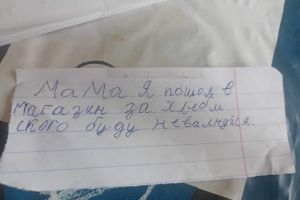 МаМа Я пошол в
магазин за хлебом
скоро буду неволнуйся.